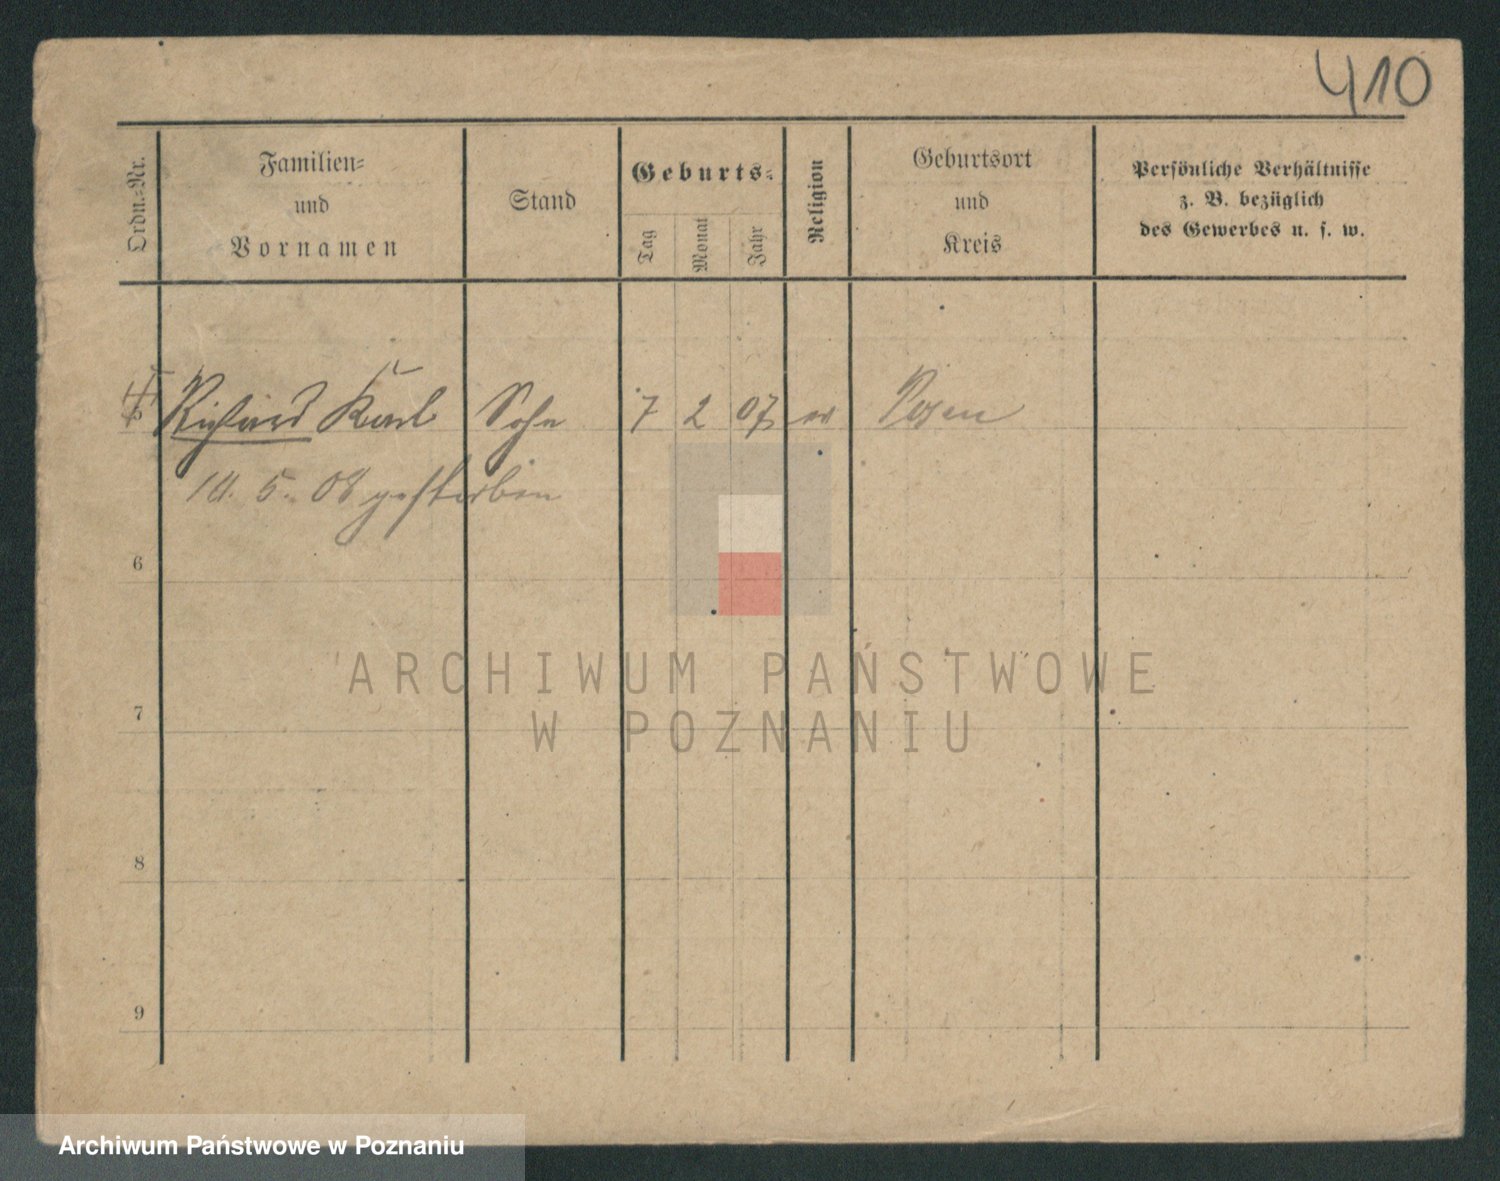 410
Ordn.-Nr.
Familien-
und
Vornamen
Stand
Geburts-
Tag
Monat
Jahr
Religion
Geburtsort
und
Kreis
Persönliche Verhältnisse
z. B. bezüglich
des Gewerbes u. s. w.
5 Richard Karl Sohn 7 2 07 ev Posen
5. 08 gestorben
6
ARCHIWUM PAŃSTWOWE
7
W POZNANIU
8
9
Archiwum Państwowe w Poznaniu